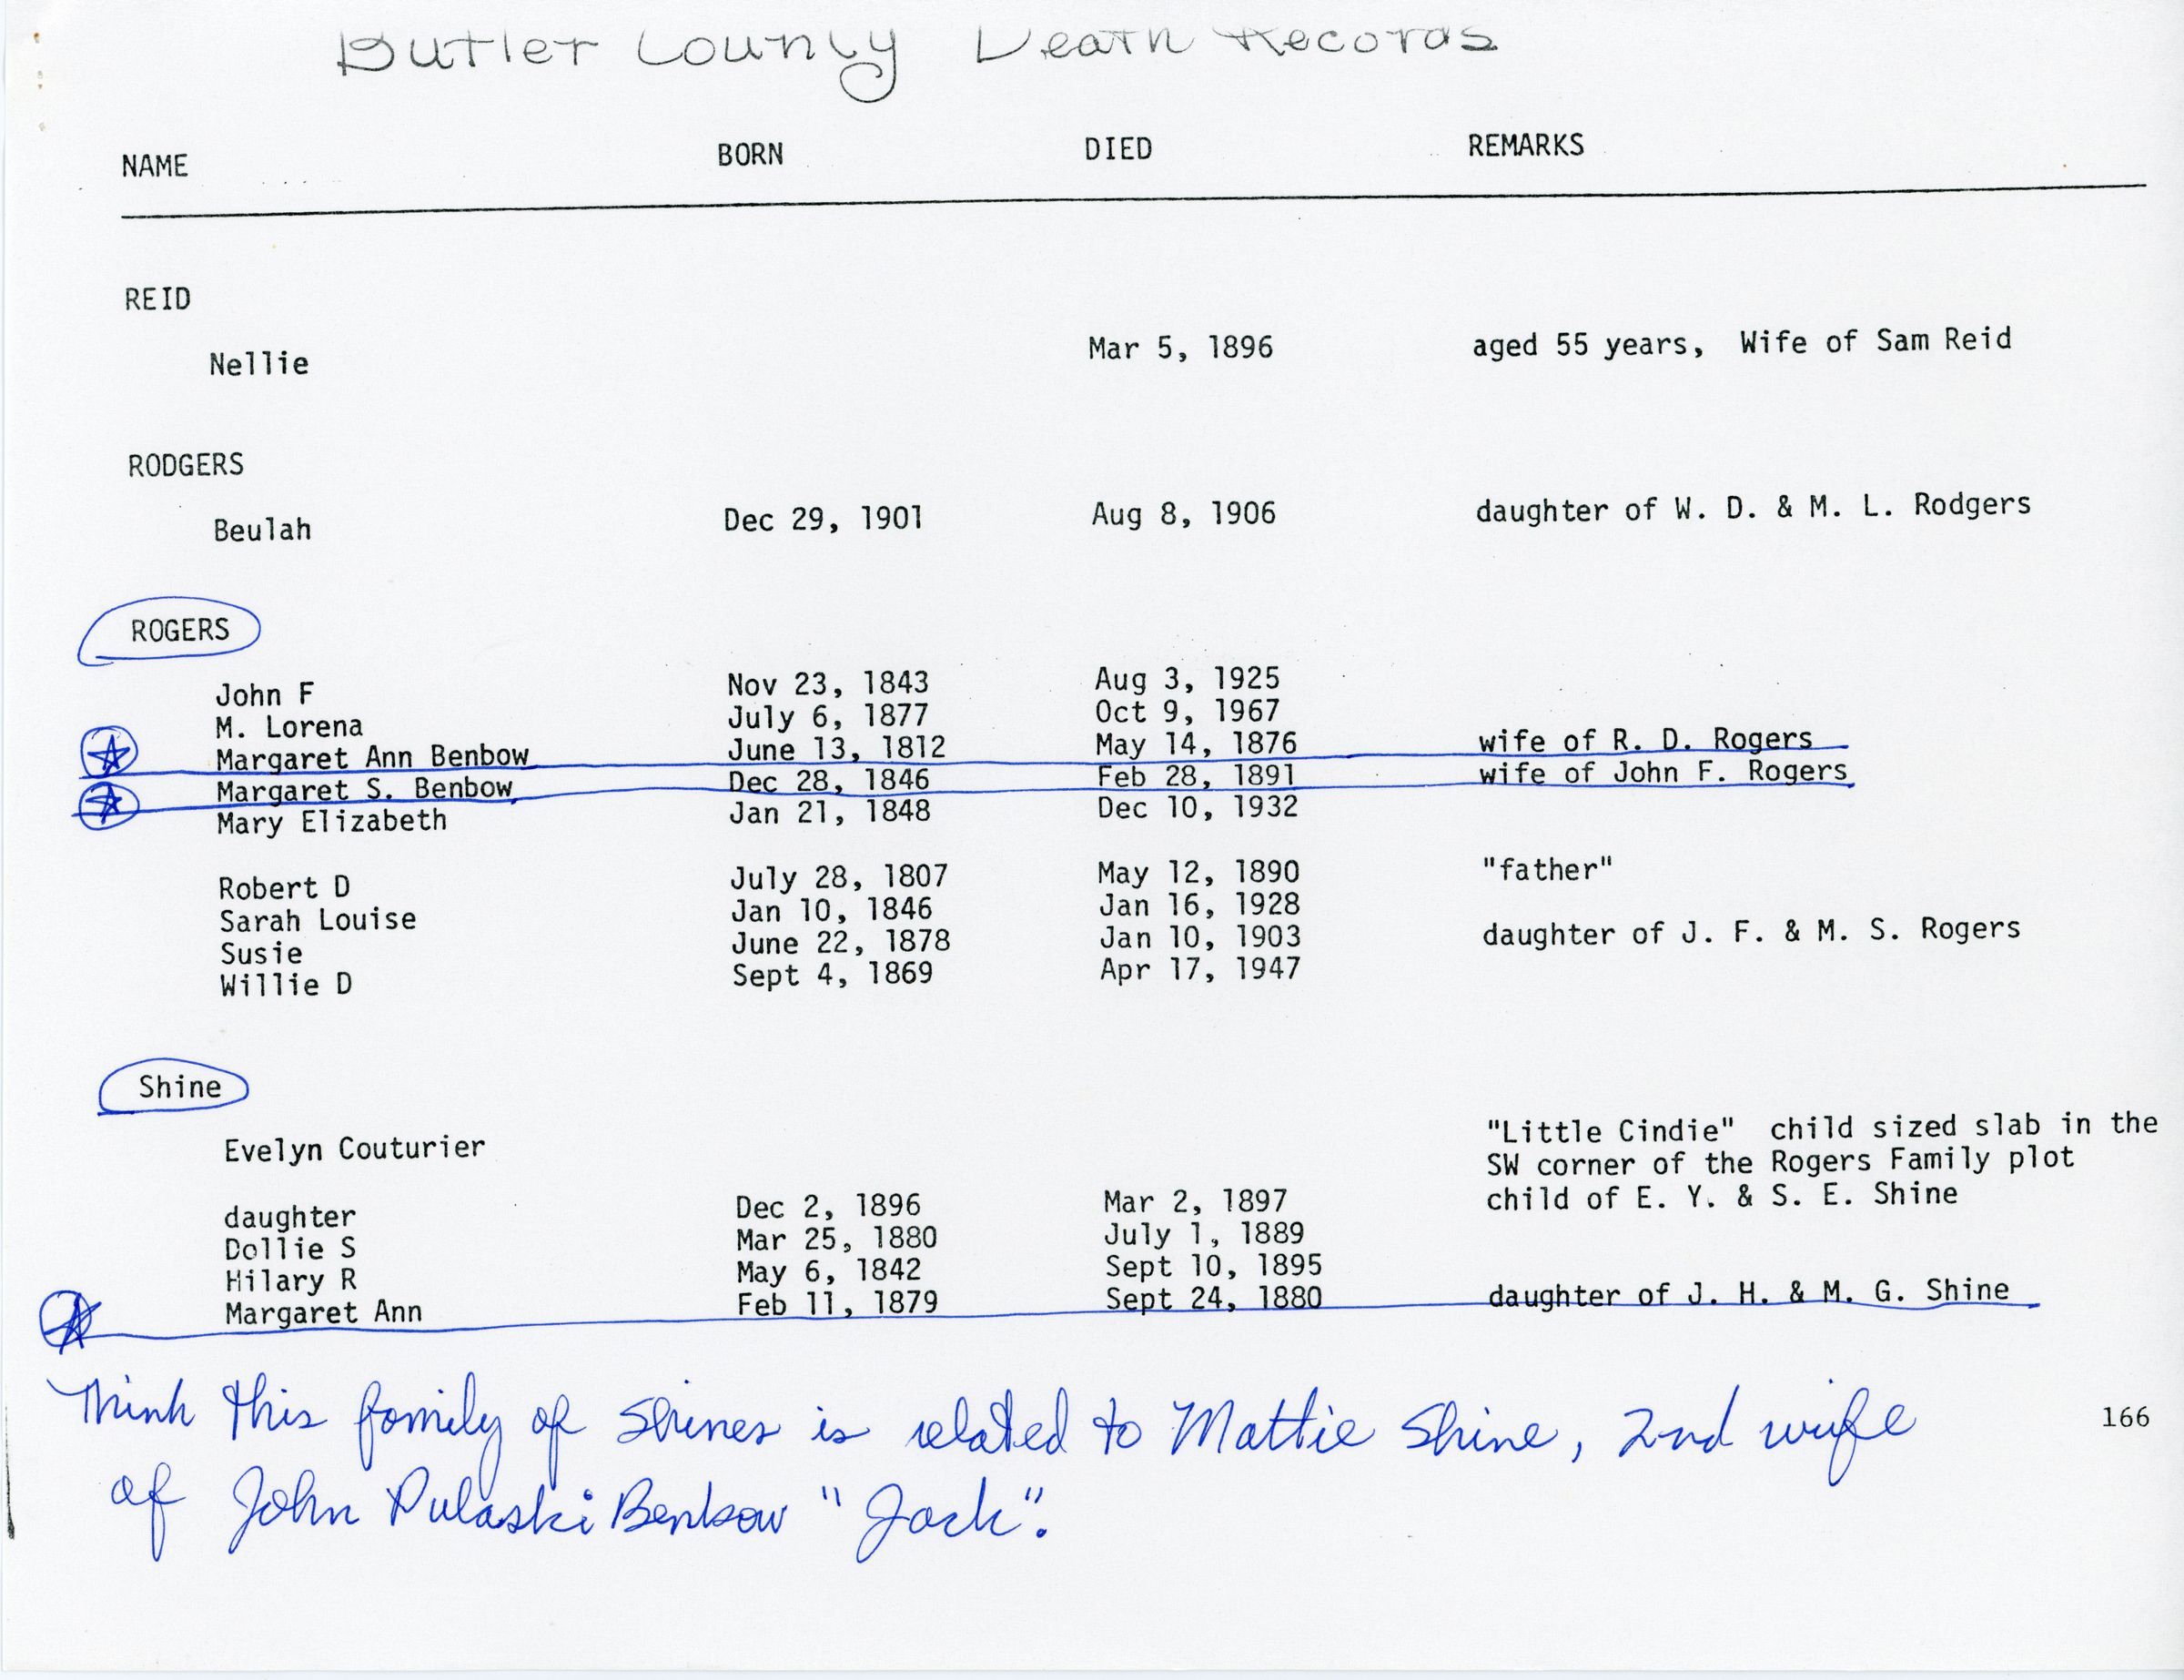 Butler County Death Records
NAME BORN DIED REMARKS
REID
Nellie Mar 5, 1896 aged 55 years, Wife of Sam Reid
RODGERS
Beulah Dec 29, 1901 Aug 8, 1906 daughter of W. D. & M. L. Rodgers
ROGERS
John F Nov 23, 1843 Aug 3, 1925
M. Lorena July 6, 1877 Oct 9, 1967
Margaret Ann Benbow June 13, 1812 May 14, 1876 wife of R. D. Rogers
Margaret S. Benbow Dec 28, 1846 Feb 28, 1891 wife of John F. Rogers
Mary Elizabeth Jan 21, 1848 Dec 10, 1932
Robert D July 28, 1807 May 12, 1890 "father"
Sarah Louise Jan 10, 1846 Jan 16, 1928
Susie June 22, 1878 Jan 10, 1903 daughter of J. F. & M. S. Rogers
Willie D Sept 4, 1869 Apr 17, 1947
Shine
Evelyn Couturier "Little Cindie" child sized slab in the
SW corner of the Rogers Family plot
daughter Dec 2, 1896 Mar 2, 1897 child of E. Y. & S. E. Shine
Dollie S Mar 25, 1880 July 1, 1889
Hilary R May 6, 1842 Sept 10, 1895
Margaret Ann Feb 11, 1879 Sept 24, 1880 daughter of J. H. & M. G. Shine
Think this family of Shines is related to Mattie Shine, 2nd wife
166
of John Pulaski Benbow "Jack".